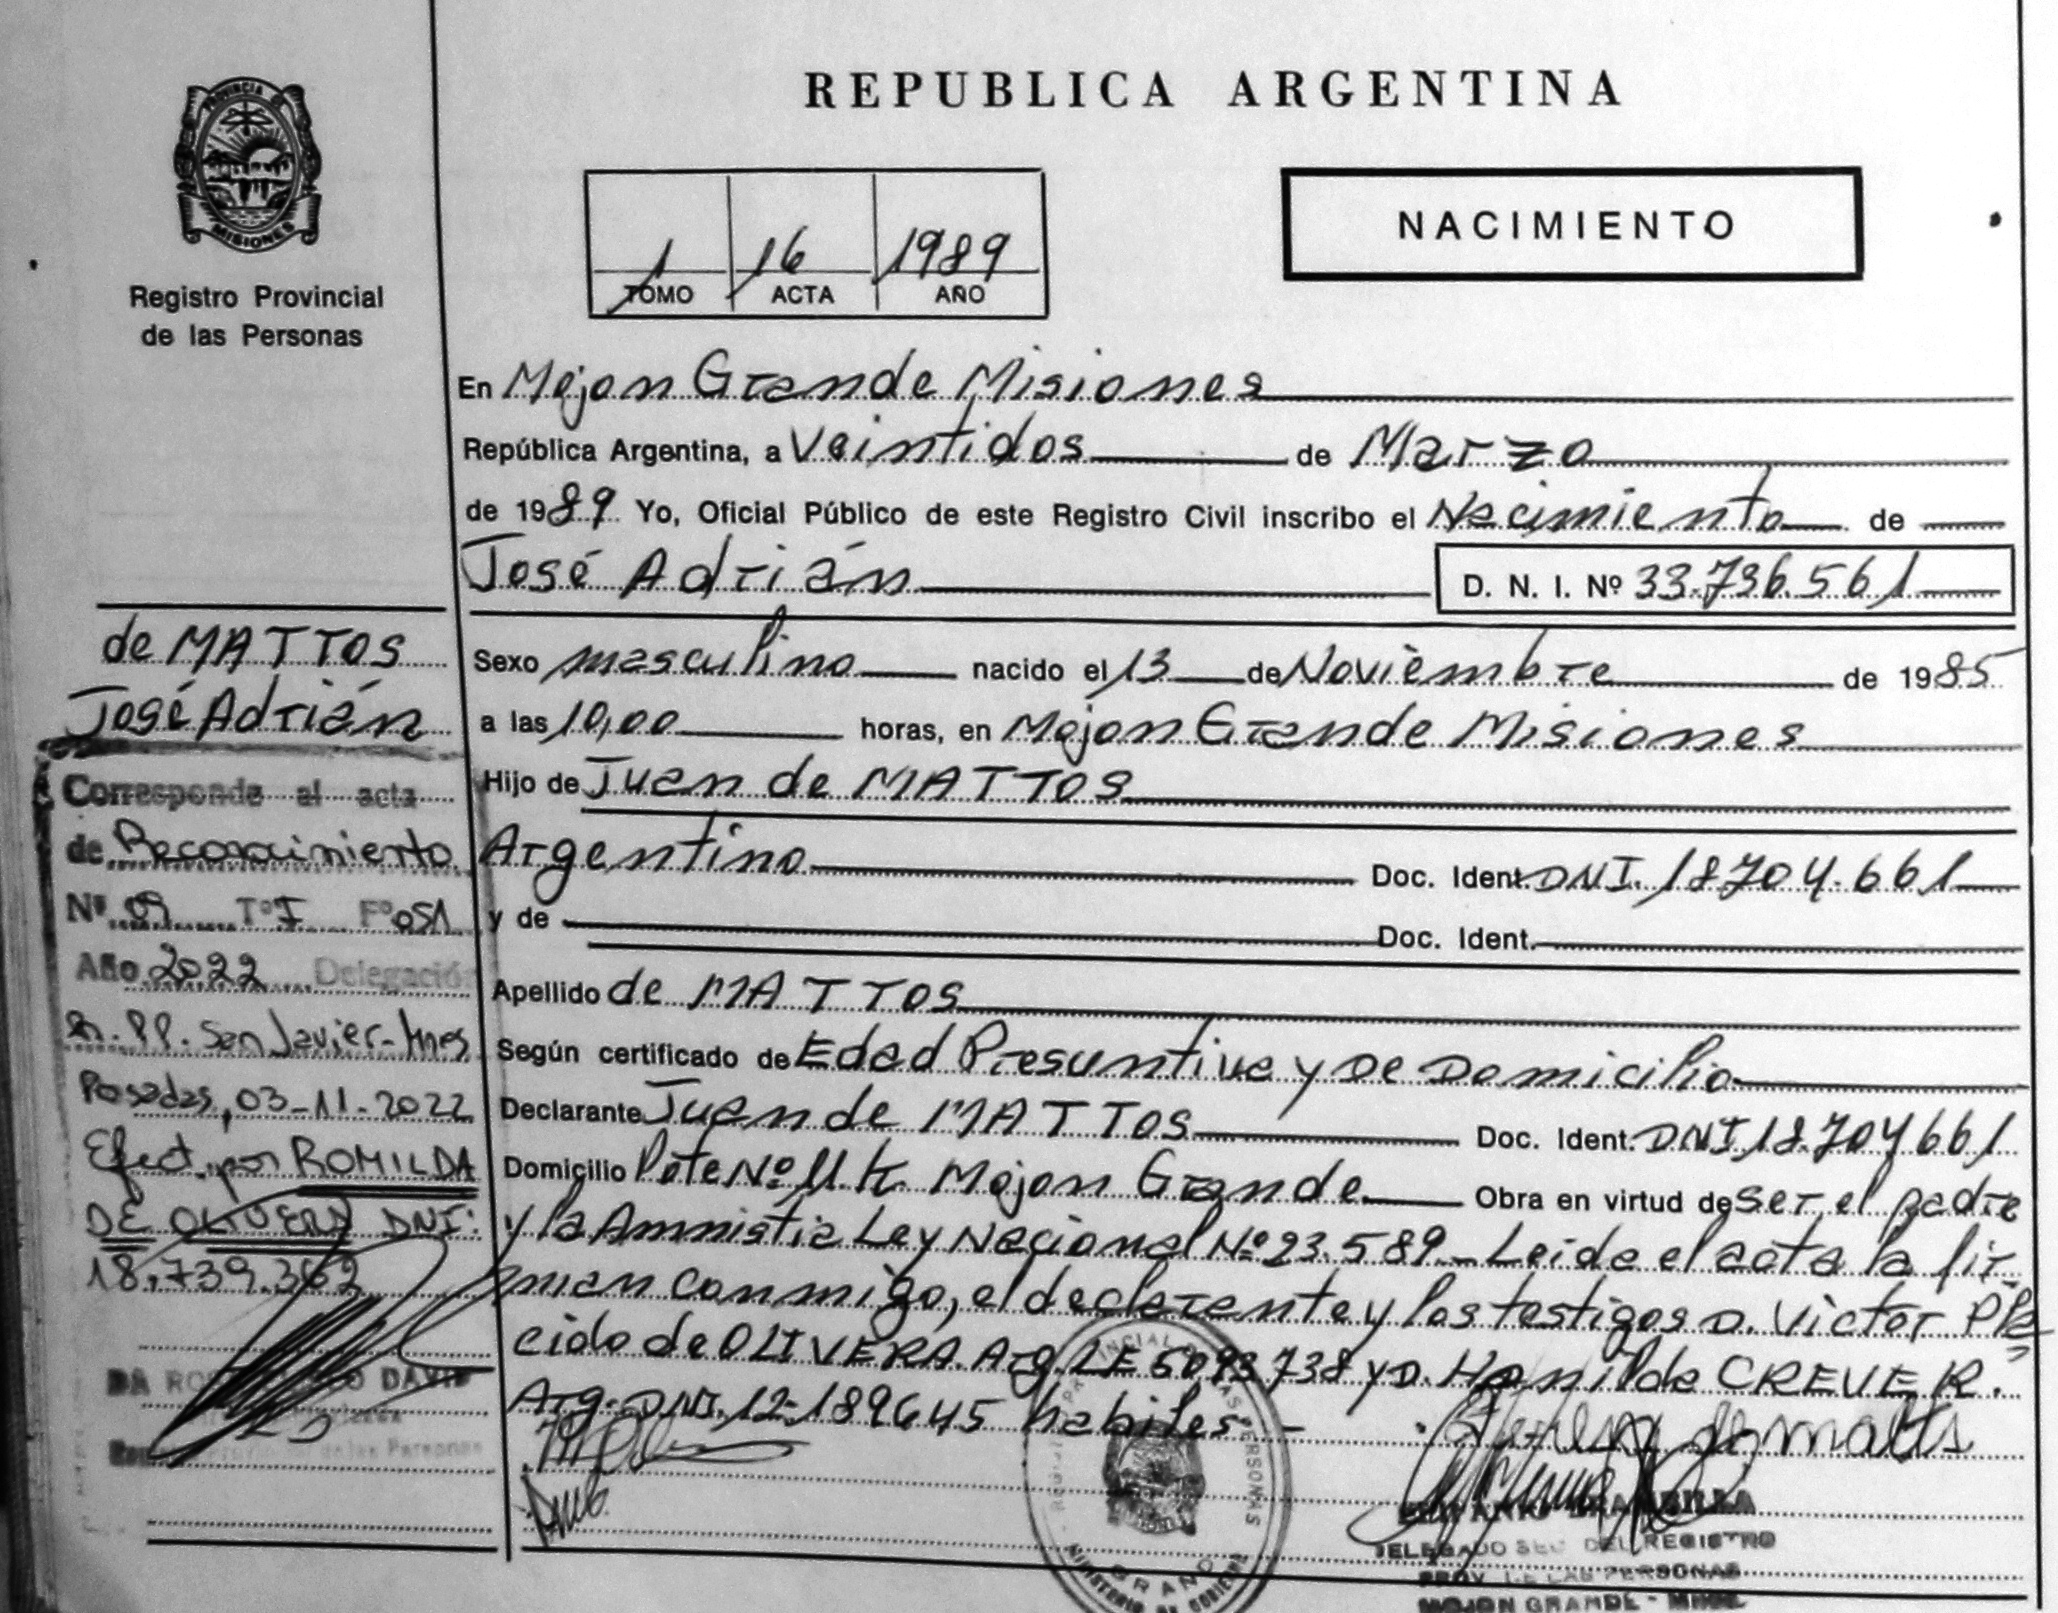 PROVINCIA DE
MISIONES
Registro Provincial
de las Personas
REPUBLICA ARGENTINA
1 16 1989
TOMO ACTA AÑO
NACIMIENTO
En Mojon Grande Misiones
República Argentina, a Veintidos de Marzo
de 1989 Yo, Oficial Público de este Registro Civil inscribo el Nacimiento de
José Adrián D. N. I. Nº 33.736.561
Sexo masculino nacido el 13 de Noviembre de 1985
a las 10,00 horas, en Mojon Grande Misiones
Hijo de Juan de MATTOS
Argentino Doc. Ident. DNI. 18704.661
y de Doc. Ident.
Apellido de MATTOS
Según certificado de Edad Presuntiva y De Domicilio
Declarante Juan de MATTOS Doc. Ident. DNI 18.704661
Domicilio Lote Nº Mojon Grande Obra en virtud de ser el padre
y la Amnistia Ley Nacional Nº 23.589.- Leida el acta la fir-
man conmigo, el declarante y los testigos D. Victor Pla
cido de OLIVERA. Arg. LE 5093738 y D. CREVER.
Arg. DNI. 12.189645 habiles.-
de MATTOS
José Adrián
Corresponde al acta
de Reconocimiento
Nº 09 Tº I Fº 051
Año 2022 Delegación
R. PP. San Javier - Mnes
Posadas, 03-11-2022
Efect. por ROMILDA
DE OLIVERA DNI:
18.739.362
de las Personas
DELEGADO DEL REGISTRO
PROV. DE LAS PERSONAS
MOJON GRANDE - MNES.
MINISTERIO DE GOBIERNO